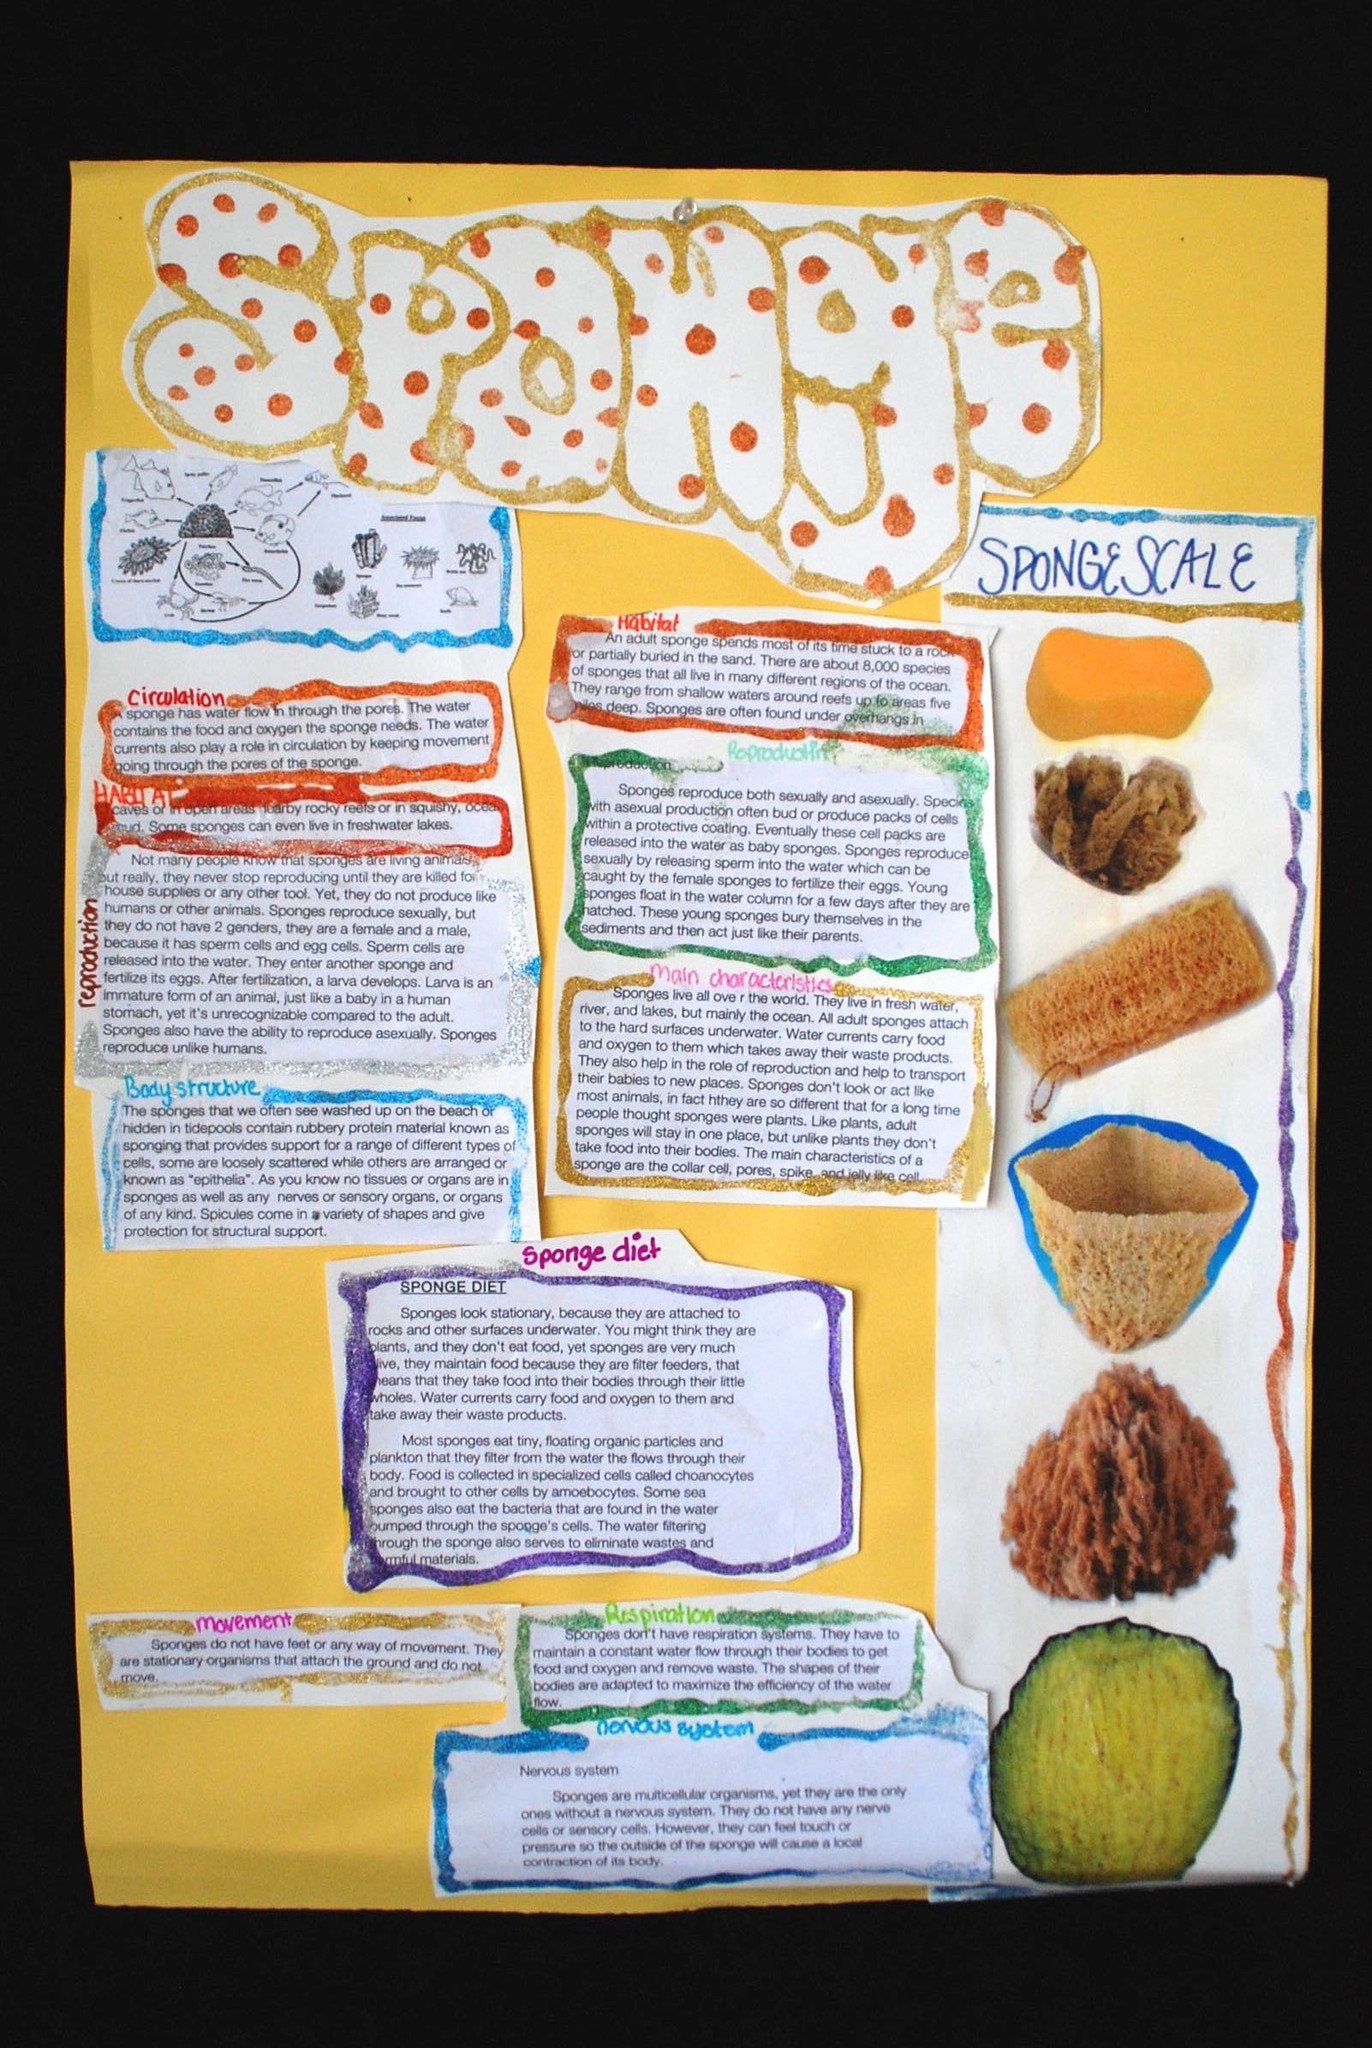 Sponge
SPONGE SCALE
Associated Fauna
Circulation
sponge has water flow in through the pores. The water
contains the food and oxygen the sponge needs. The water
currents also play a role in circulation by keeping movement
going through the pores of the sponge.
HABITAT
caves or in open areas nearby rocky reefs or in squishy,
Some sponges can even live in freshwater lakes.
reproduction
Not many people know that sponges are living animals
but really, they never stop reproducing until they are killed for
house supplies or any other tool. Yet, they do not produce like
humans or other animals. Sponges reproduce sexually, but
they do not have 2 genders, they are a female and a male,
because it has sperm cells and egg cells. Sperm cells are
released into the water. They enter another sponge and
fertilize its eggs. After fertilization, a larva develops. Larva is an
immature form of an animal, just like a baby in a human
stomach, yet it's unrecognizable compared to the adult.
Sponges also have the ability to reproduce asexually. Sponges
reproduce unlike humans.
Body structure
The sponges that we often see washed up on the beach or
hidden in tidepools contain rubbery protein material known as
sponging that provides support for a range of different types of
cells, some are loosely scattered while others are arranged or
known as "epithelia". As you know no tissues or organs are in
sponges as well as any nerves or sensory organs, or organs
of any kind. Spicules come in a variety of shapes and give
protection for structural support.
Habitat
An adult sponge spends most of its time stuck to a rock
or partially buried in the sand. There are about 8,000 species
of sponges that all live in many different regions of the ocean.
They range from shallow waters around reefs up to areas five
miles deep. Sponges are often found under overhangs in
Reproduction
Reproduction
Sponges reproduce both sexually and asexually. Species
with asexual production often bud or produce packs of cells
within a protective coating. Eventually these cell packs are
released into the water as baby sponges. Sponges reproduce
sexually by releasing sperm into the water which can be
caught by the female sponges to fertilize their eggs. Young
sponges float in the water column for a few days after they are
hatched. These young sponges bury themselves in the
sediments and then act just like their parents.
Main characteristics
Sponges live all ove r the world. They live in fresh water,
river, and lakes, but mainly the ocean. All adult sponges attach
to the hard surfaces underwater. Water currents carry food
and oxygen to them which takes away their waste products.
They also help in the role of reproduction and help to transport
their babies to new places. Sponges don't look or act like
most animals, in fact hthey are so different that for a long time
people thought sponges were plants. Like plants, adult
sponges will stay in one place, but unlike plants they don't
take food into their bodies. The main characteristics of a
sponge are the collar cell, pores, spike, and jelly like cell
Sponge diet
SPONGE DIET
Sponges look stationary, because they are attached to
rocks and other surfaces underwater. You might think they are
plants, and they don't eat food, yet sponges are very much
alive, they maintain food because they are filter feeders, that
means that they take food into their bodies through their little
wholes. Water currents carry food and oxygen to them and
take away their waste products.
Most sponges eat tiny, floating organic particles and
plankton that they filter from the water the flows through their
body. Food is collected in specialized cells called choanocytes
and brought to other cells by amoebocytes. Some sea
sponges also eat the bacteria that are found in the water
pumped through the sponge's cells. The water filtering
through the sponge also serves to eliminate wastes and
harmful materials.
movement
Sponges do not have feet or any way of movement. They
are stationary organisms that attach the ground and do not
move.
Respiration
Sponges don't have respiration systems. They have to
maintain a constant water flow through their bodies to get
food and oxygen and remove waste. The shapes of their
bodies are adapted to maximize the efficiency of the water
flow.
nervous system
Nervous system
Sponges are multicellular organisms, yet they are the only
ones without a nervous system. They do not have any nerve
cells or sensory cells. However, they can feel touch or
pressure so the outside of the sponge will cause a local
contraction of its body.